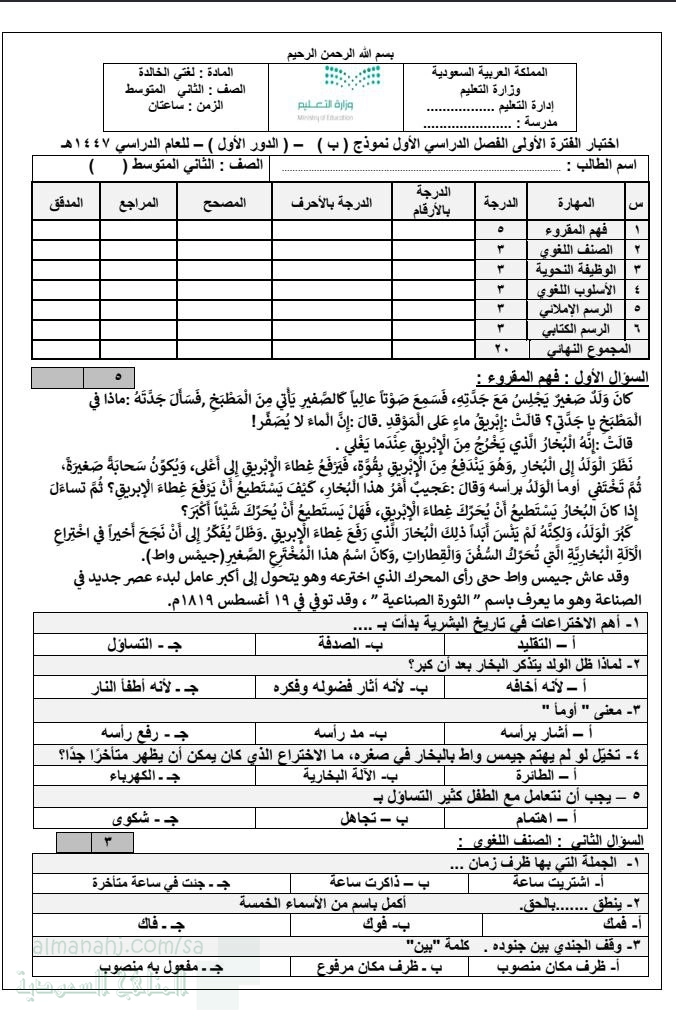 بسم الله الرحمن الرحيم
المملكة العربية السعودية
وزارة التعليم
إدارة التعليم .................
مدرسة : ......................
وزارة التعليم
Ministry of Education
المادة : لغتي الخالدة
الصف : الثاني المتوسط
الزمن : ساعتان
اختبار الفترة الأولى الفصل الدراسي الأول نموذج ( ب ) – ( الدور الأول ) – للعام الدراسي ١٤٤٧هـ
اسم الطالب : ...................... الصف : الثاني المتوسط ( )
س المهارة الدرجة الدرجة بالأرقام الدرجة بالأحرف المصحح المراجع المدقق
١ فهم المقروء ٥
٢ الصنف اللغوي ٣
٣ الوظيفة النحوية ٣
٤ الأسلوب اللغوي ٣
٥ الرسم الإملائي ٣
٦ الرسم الكتابي ٣
المجموع النهائي ٢٠
السؤال الأول : فهم المقروء : ٥
كانَ وَلَدٌ صَغيرٌ يَجْلِسُ مَعَ جَدَّتِهِ، فَسَمِعَ صَوْتاً عالِياً كَالصَّفيرِ يَأْتي مِنَ الْمَطْبَخِ ,فَسَأَلَ جَدَّتَهُ :ماذا في
الْمَطْبَخِ يا جَدَّتي؟ قالَتْ :إِبْريقُ ماءٍ عَلى الْمَوْقِدِ .قالَ :إِنَّ الْماءَ لا يُصَفِّر !
قالَتْ :إِنَّهُ الْبُخارُ الَّذي يَخْرُجُ مِنَ الْإِبْريقِ عِنْدَما يَغْلي .
نَظَرَ الْوَلَدُ إِلى الْبُخارِ ,وَهُوَ يَنْدَفِعُ مِنَ الْإِبْريقِ بِقُوَّةٍ، فَيَرْفَعُ غِطاءَ الْإِبْريقِ إِلى أَعْلى، وَيُكوِّنُ سَحابَةً صَغيرَةً،
ثُمَّ تَخْتَفي أومأ الْوَلَدُ برأسه وَقالَ :عَجيبٌ أَمْرُ هذا الْبُخارِ، كَيْفَ يَسْتَطيعُ أَنْ يَرْفَعَ غِطاءَ الْإِبريقِ؟ ثُمَّ تساءَلَ
إِذا كانَ الْبُخارُ يَسْتَطيعُ أَنْ يُحَرِّكَ غِطاءَ الْإِبْريقِ، فَهَلْ يَستَطيعُ أَنْ يُحَرِّكَ شَيْئاً أَكْبَرَ؟
كَبُرَ الْوَلَدُ، وَلكِنَّهُ لَمْ يَنْسَ أَبَداً ذلِكَ الْبُخارَ الَّذي رَفَعَ غِطاءَ الْإبريقِ .وَظَلَّ يُفَكِّرُ إِلى أَنْ نَجَحَ أَخيراً في اخْتِراعِ
الْآلَةِ الْبُخاريَّةِ الَّتي تُحَرِّكُ السُّفُنَ وَالْقِطاراتِ ,وَكانَ اسْمُ هذا الْمُخْتَرِعِ الصَّغيرِ(جيمْس واط).
وقد عاش جيمس واط حتى رأى المحرك الذي اخترعه وهو يتحول إلى أكبر عامل لبدء عصر جديد في
الصناعة وهو ما يعرف باسم " الثورة الصناعية " ، وقد توفي في ١٩ أغسطس ١٨١٩م.
١- أهم الاختراعات في تاريخ البشرية بدأت بـ ....
أ – التقليد ب- الصدفة جـ - التساؤل
٢- لماذا ظل الولد يتذكر البخار بعد أن كبر؟
أ – لأنه أخافه ب- لأنه أثار فضوله وفكره جـ - لأنه أطفأ النار
٣- معنى " أومأ "
أ – أشار برأسه ب- مد رأسه جـ - رفع رأسه
٤- تخيّل لو لم يهتم جيمس واط بالبخار في صغره، ما الاختراع الذي كان يمكن أن يظهر متأخرًا جدًا؟
أ – الطائرة ب- الآلة البخارية جـ - الكهرباء
٥ – يجب أن نتعامل مع الطفل كثير التساؤل بـ
أ – اهتمام ب – تجاهل جـ - شكوى
السؤال الثاني : الصنف اللغوي : ٣
١- الجملة التي بها ظرف زمان ...
أ- اشتريت ساعة ب – ذاكرت ساعة جـ - جئت في ساعة متأخرة
٢- ينطق .......بالحق. أكمل باسم من الأسماء الخمسة
أ- فمك ب- فوك جـ - فاك
٣- وقف الجندي بين جنوده . كلمة "بين"
أ- ظرف مكان منصوب ب - ظرف مكان مرفوع جـ - مفعول به منصوب
almanahj.com/sa
المناهج السعودية